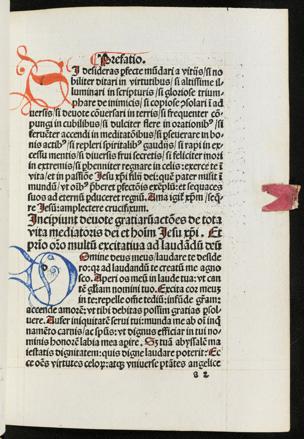 Prefatio.
SI desideras p̄fecte mūdari a vitijs/ si no
biliter ditari in virtutibus/ si altissime il
luminari in scripturis/ si gloriose trium
phare de inimicis/ si copiose p̄solari ī ad
uersis/ si deuote cōuersari in terris/ si frequenter cō
pungi in cubilibus/ si dulciter flere in orationibꝰ/ si
feruēter accendi in meditatōibus/ si pseuerare in bo
nis actibꝰ/ si repleri spiritalibꝰ gaudijs/ si rapi in ex
cessu mentis/ si diuersis frui secretis/ si feliciter mori
in extremis/ si phenniter regnare in celis: exerce te ī
vita/ et in passiōe Jesu xp̄i filij dei: quē pater misit ī
mundū/ vt oībꝰ p̄beret p̄fectōis exēplū: et sequaces
suos ad eternā pduceret regnū. Ama igit̄ xp̄m/ seq̄
re Jesū: amplectere crucifixum.
Incipiunt deuote gratiarū actōes de tota
vita mediatoris dei et hoīm Jesu xp̄i. Et
prīo or̄o multū excitatiua ad laudādū deū
DOmine deus meus/ laudare te deside
ro: qr ad laudandū te creatū me agno
sco. Aperi os meū in laude tua: vt can
tē gl̄iam nomini tuo. Excita cor meuz
in te: repelle ōme tediū: infūde gr̄am:
accende amorē: vt tibi debitas possim gratias psol
uere. Aufer iniquitatē serui tui: munda me ab oī inq̄
namēto carnis/ ac spūs: vt dignus efficiar in tui no
minis honorē labia mea apire. Sz tuā abyssalē ma
iestatis dignitatem: quis digne laudare poterit: Ec
ce oēs virtutes celoꝝ: atqꝫ vniuerse ptātes angelice
a 2